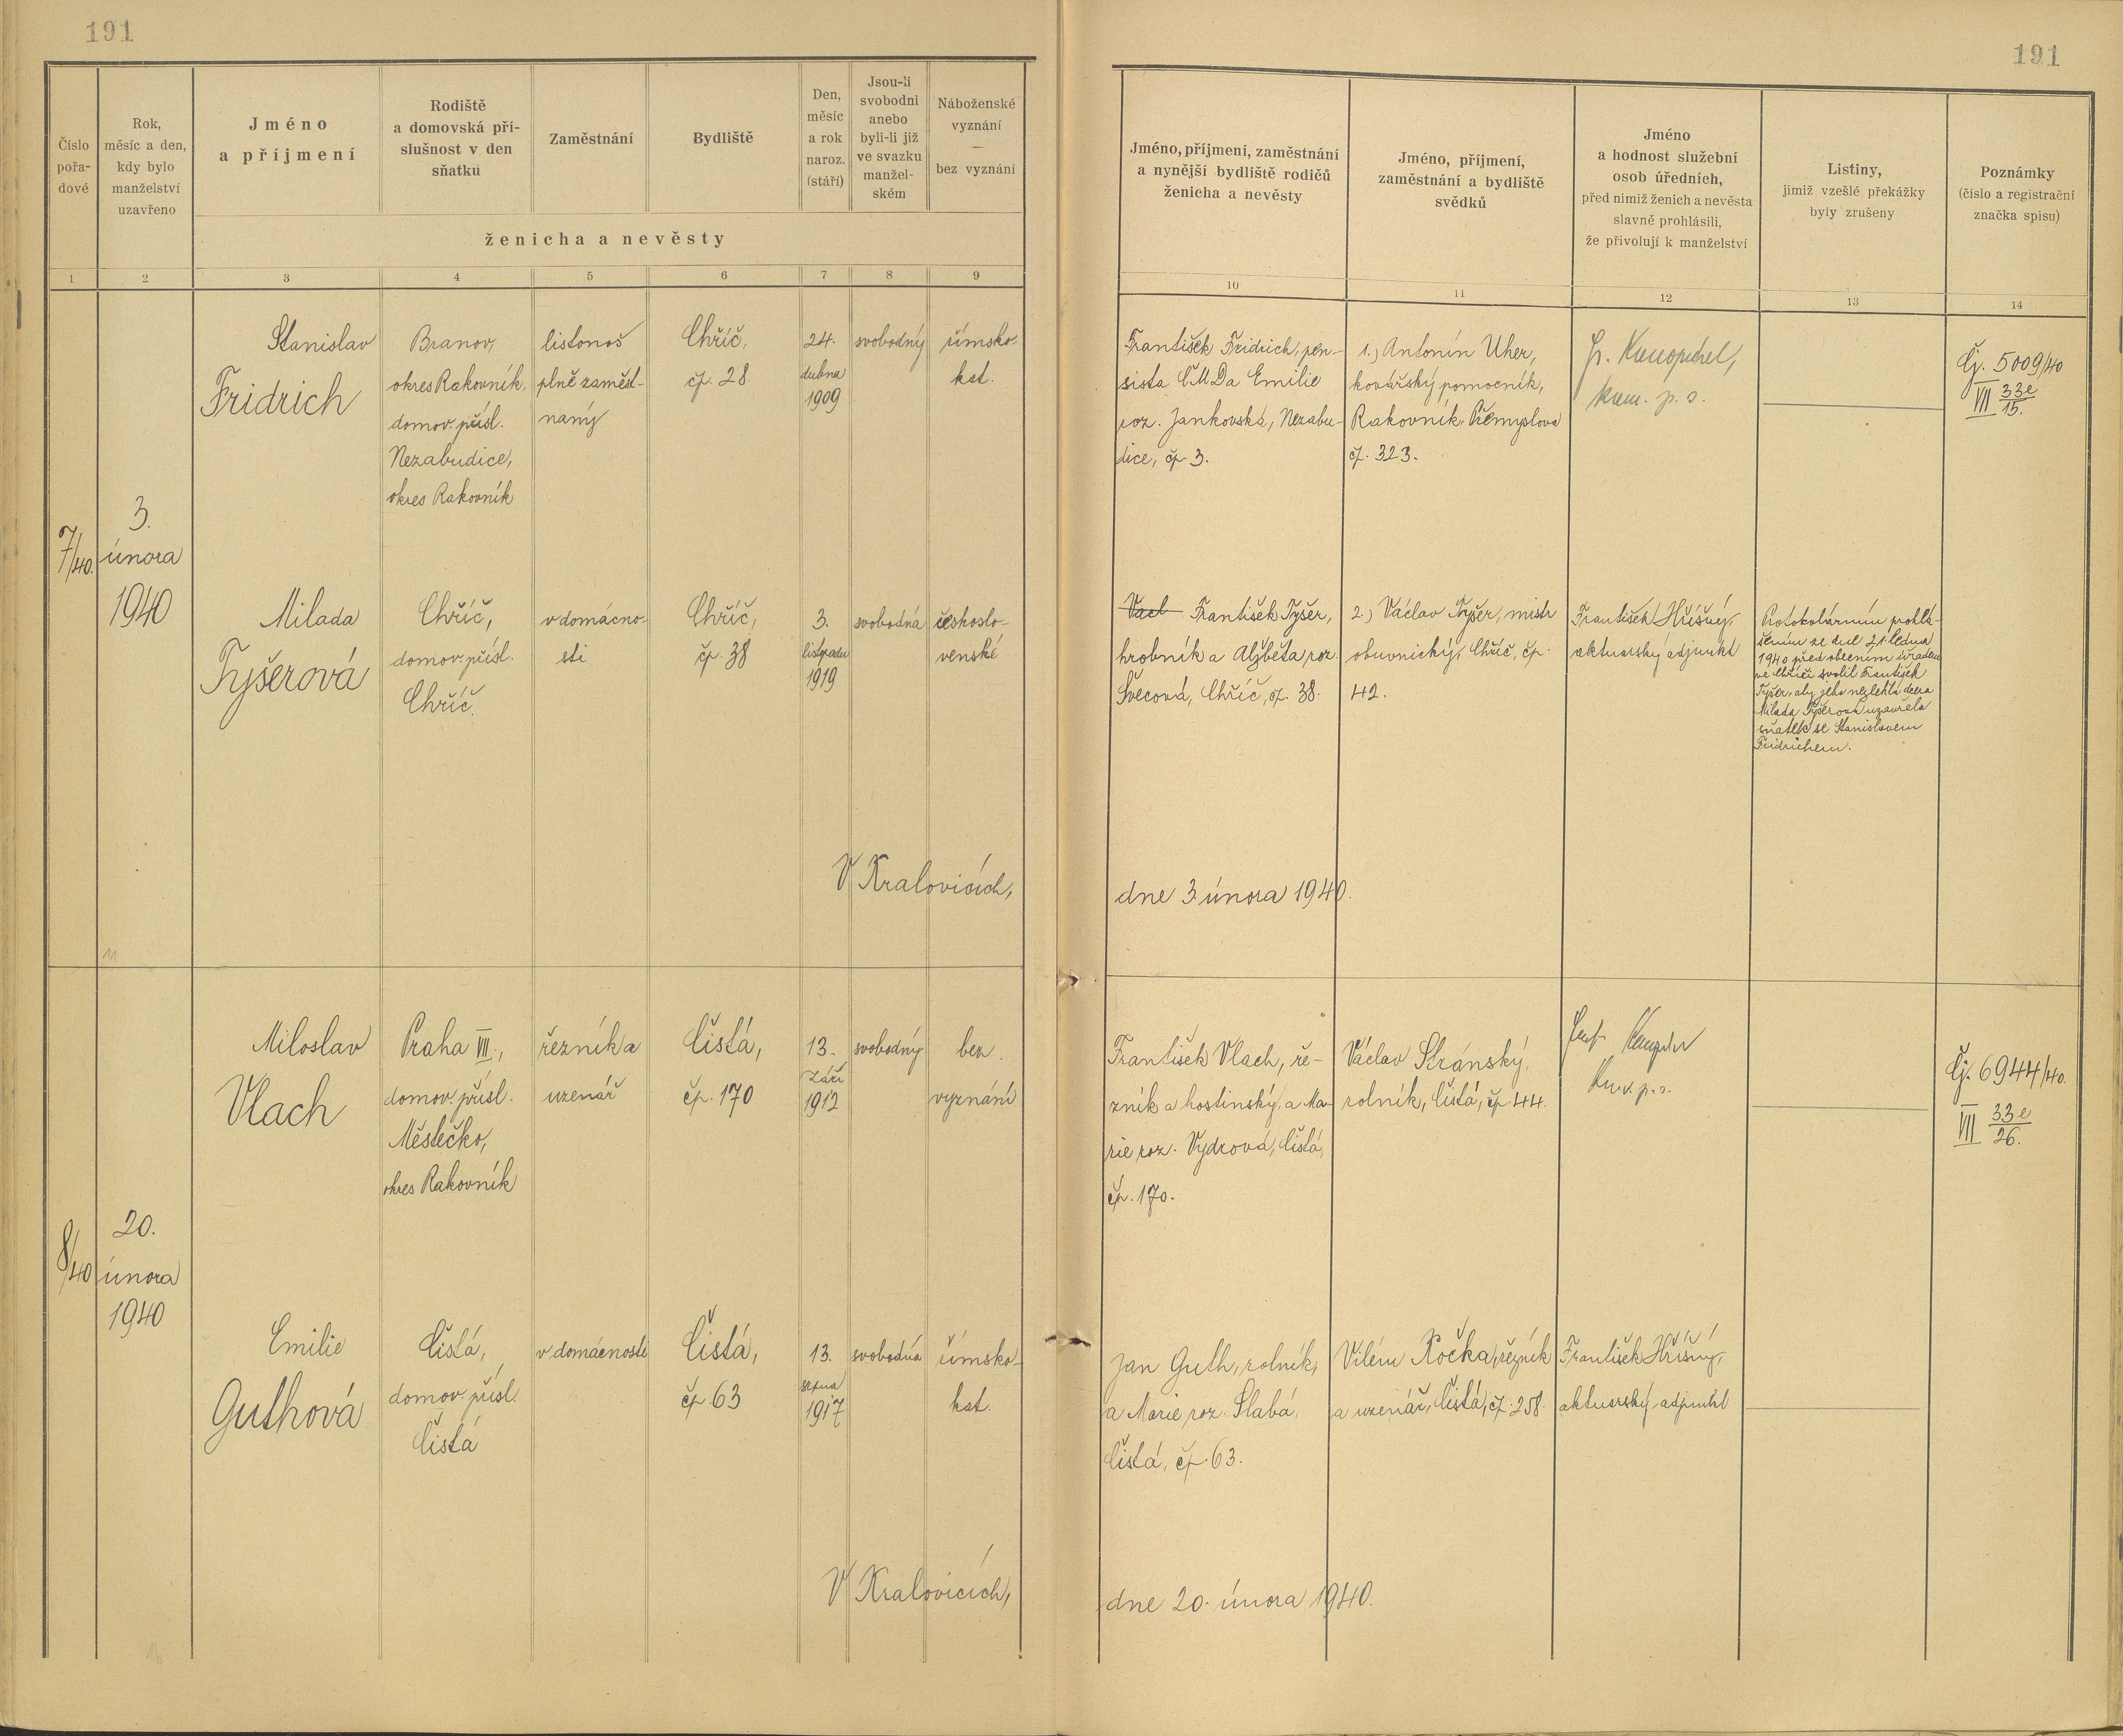 191
191
Číslo
pořa-
dové
Rok,
měsíc a den,
kdy bylo
manželství
uzavřeno
Jméno
a příjmení
Rodiště
a domovská pří-
slušnost v den
sňatku
Zaměstnání
Bydliště
Den,
měsíc
a rok
naroz.
(stáří)
Jsou-li
svobodni
anebo
byli-li již
ve svazku
manžel-
ském
Náboženské
vyznání
—
bez vyznání
ženicha a nevěsty
Jméno, příjmení, zaměstnání
a nynější bydliště rodičů
ženicha a nevěsty
Jméno, příjmení,
zaměstnání a bydliště
svědků
Jméno
a hodnost služební
osob úředních,
před nimiž ženich a nevěsta
slavně prohlásili,
že přivolují k manželství
Listiny,
jimiž vzešlé překážky
byly zrušeny
Poznámky
(číslo a registrační
značka spisu)
1 2 3 4 5 6 7 8 9
10 11 12 13 14
7/40.
3.
února
1940
Stanislav
Fridrich
Branov,
okres Rakovník,
domov. přísl.
Nezabudice,
okres Rakovník
listonoš
plně zaměst-
naný
Chříč,
čp. 28.
24.
dubna
1909
svobodný
římsko-
kat.
František Fridrich, pen-
sista ČMD a Emilie
roz. Jankovská, Nezabu-
dice, čp. 3.
1.) Antonín Uher,
kovářský pomocník,
Rakovník, Přemyslova
čp. 323.
kom. p. s.
Čj. 5009/40
VII 33e/15.
Milada
Tyšerová
Chříč,
domov. přísl.
Chříč.
v domácno-
sti
Chříč,
čp. 38
3.
listopadu
1919
svobodná
českoslo-
venské
Vacl František Tyšer,
hrobník a Alžběta roz.
Švecová, Chříč, čp. 38.
2.) Václav Tyšer, mistr
obuvnický, Chříč, čp.
42.
František Hříšný,
aktuarský adjunkt
Protokolárním prohlá-
šením ze dne 31. ledna
1940 před obecním úřadem
ve Chříči svolil František
Tyšer, aby jeho nezletilá dcera
Milada Tyšerová uzavřela
sňatek se Stanislavem
Fridrichem.
V Kralovicích,
dne 3. února 1940.
8/40
20.
února
1940
Miloslav
Vlach
Praha VII.,
domov. přísl.
Městečko,
okres Rakovník
řezník a
uzenář
Čistá,
čp. 170
13.
září
1912
svobodný
bez
vyznání
František Vlach, ře-
zník a hostinský, a Ma-
rie roz. Vydrová, Čistá,
čp. 170.
Václav Stránský,
rolník, Čistá, čp. 44.
Čj. 6944/40.
VII 33e/26.
Emilie
Guthová
Čistá,
domov. přísl.
Čistá
v domácnosti
Čistá,
čp 63
13.
srpna
1917
svobodná
římsko-
kat.
Jan Guth, rolník,
a Marie roz. Slabá,
Čistá, čp. 63.
Vilém Kočka, řezník
a uzenář, Čistá, čp. 258.
František Hříšný,
aktuarský adjunkt
V Kralovicích,
dne 20. února 1940.